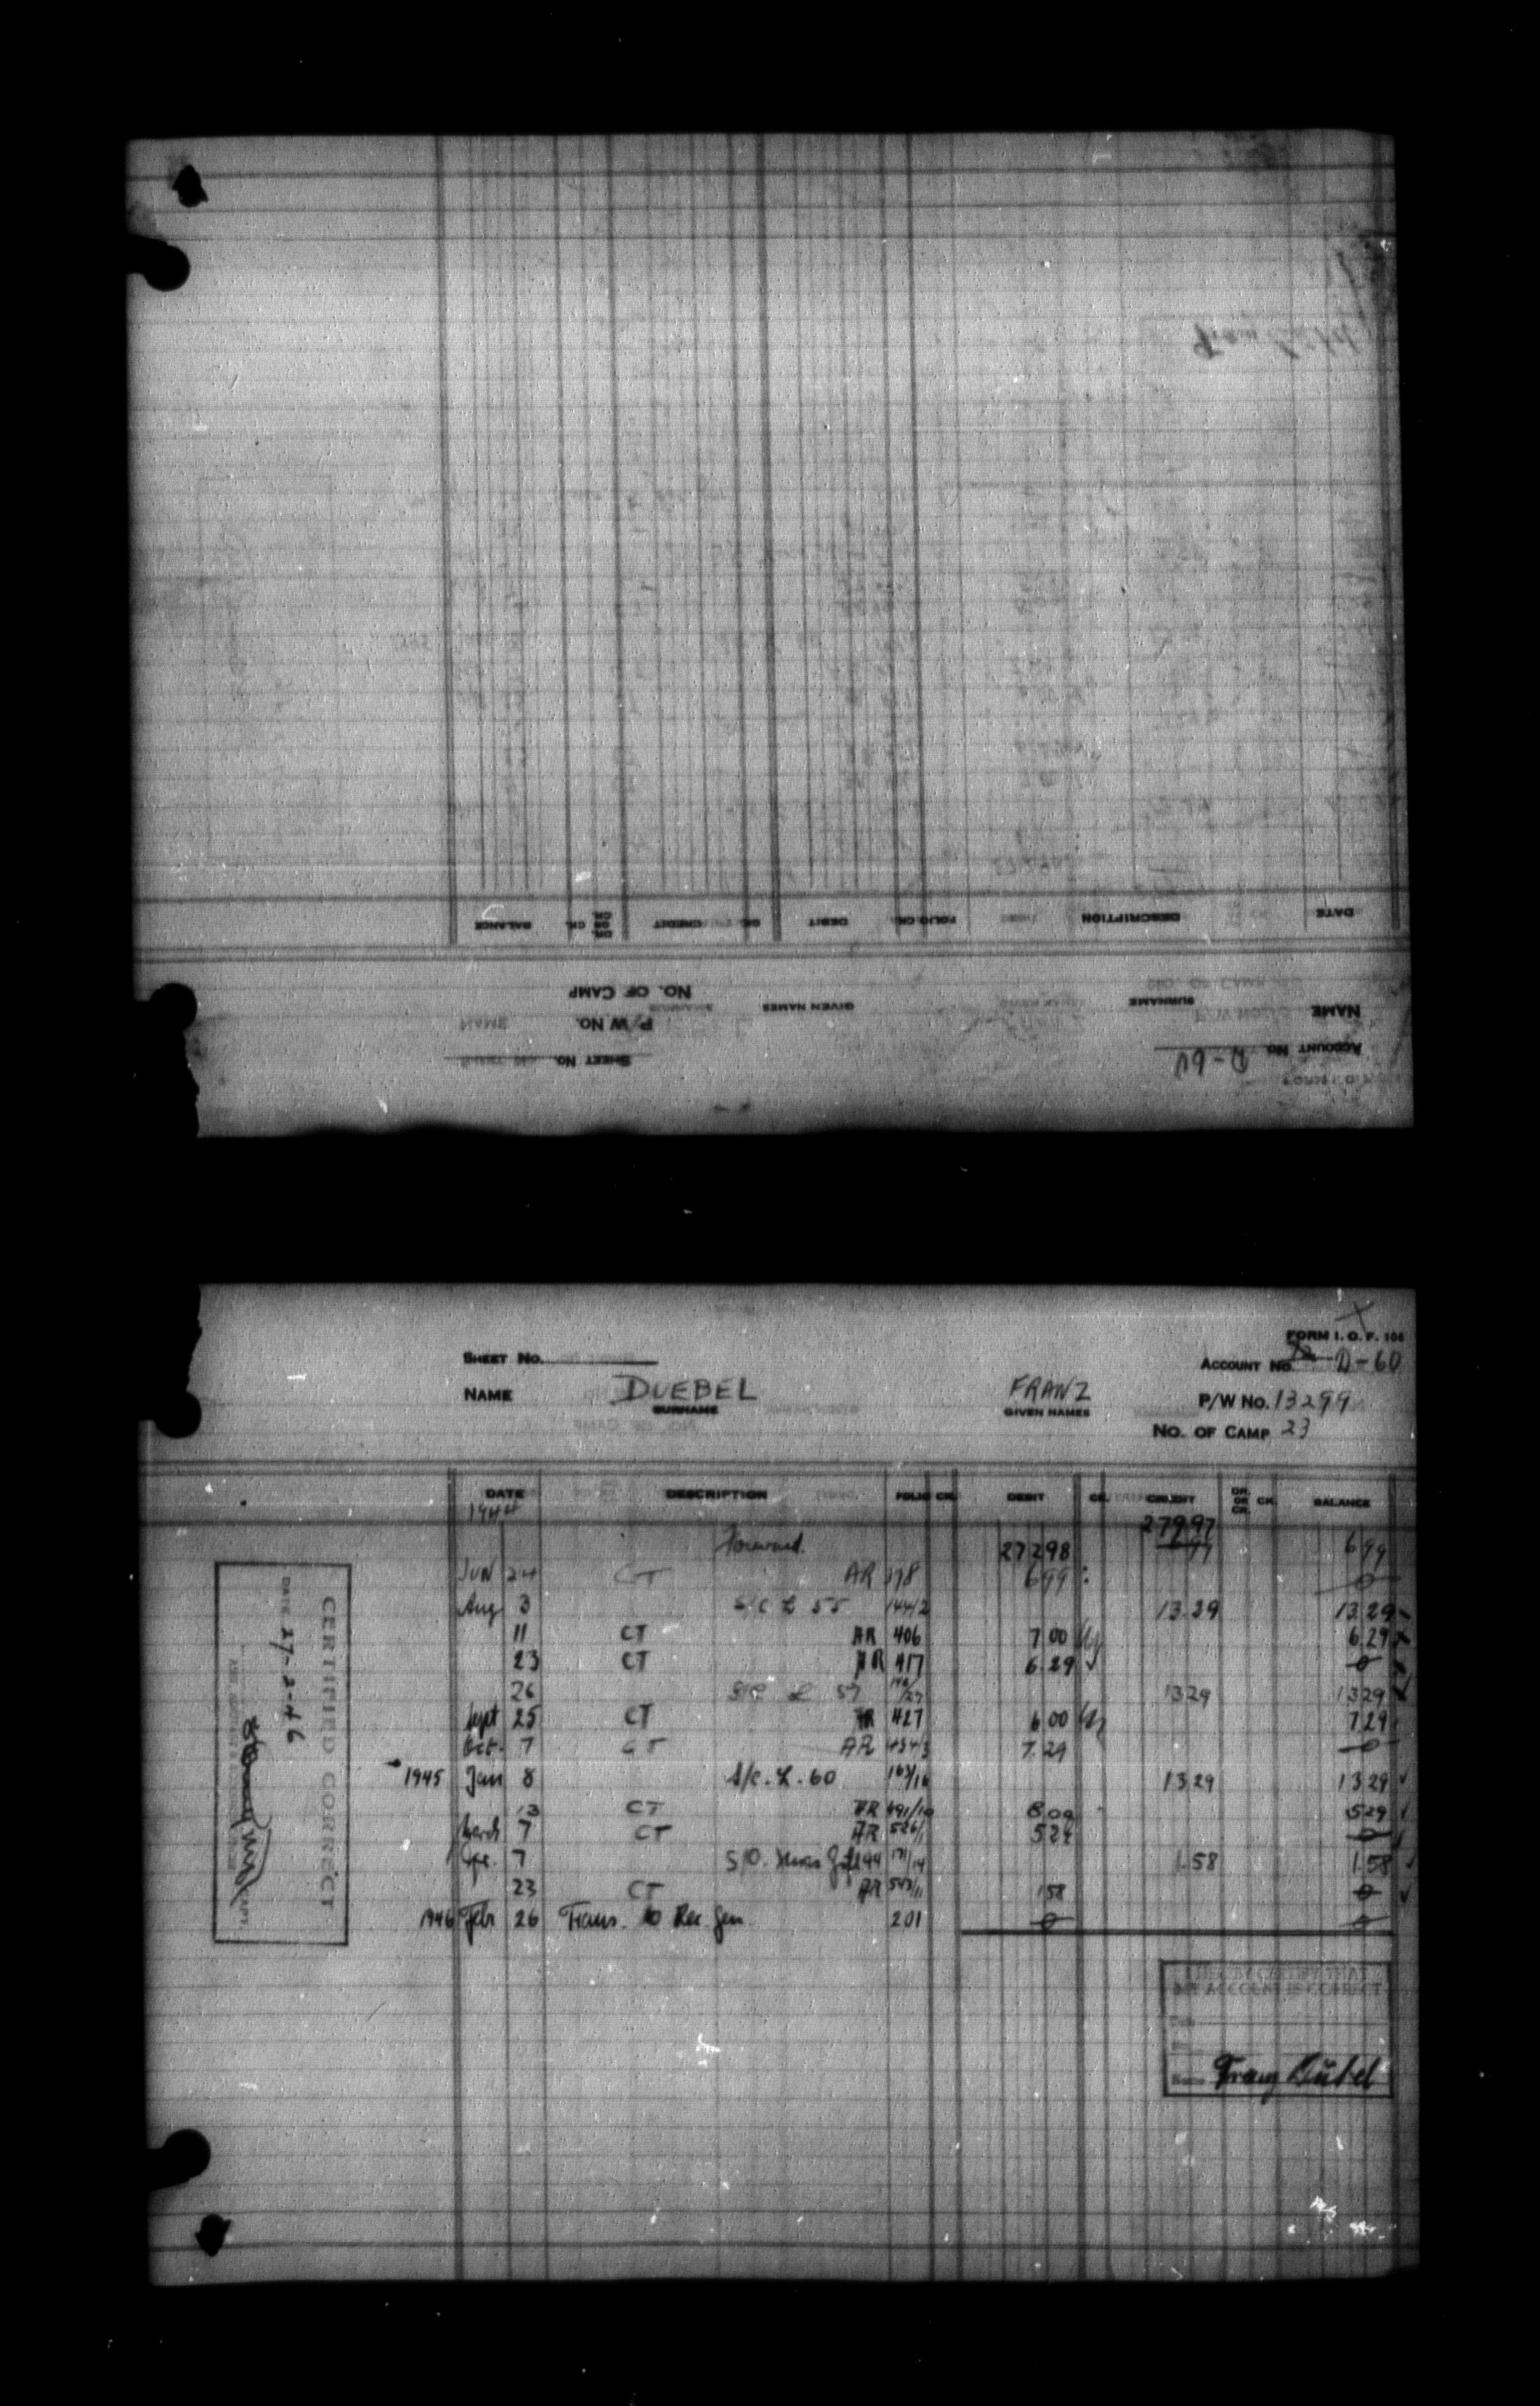 BALANCE CK. DR. OR CR. CREDIT CK. DEBIT CK. FOLIO DESCRIPTION DATE
NO. OF CAMP
GIVEN NAMES SURNAME NAME
P/W NO.
SHEET NO. ACCOUNT NO. D-60
FORM I. O. F. 106
SHEET NO. ACCOUNT NO. D-60
NAME DUEBEL FRANZ P/W NO. 13299
SURNAME GIVEN NAMES
NO. OF CAMP 23
DATE DESCRIPTION FOLIO CK. DEBIT CK. CREDIT DR. OR CR. CK. BALANCE
1944
279 97
Forward. 272 98 6 99 6 99
JUN 24 CT AR 378 6 99 0
Aug 3 S/C L 55 144/2 13.29 13.29
11 CT AR 406 7 00 6 29
23 CT AR 417 6 29 0
26 S/C L 57 13 29 13 29
Sept 25 CT AR 427 6 00 7 29
Oct. 7 CT AR 434/3 7.29 0
1945 Jan 8 S/C. L. 60 163/16 13 29 13 29
13 CT AR 491/10 8 00 5 29
March 7 CT AR 526/1 5 29 0
Apr. 7 S/O. Xmas Gift 44 171/14 1.58 1.58
23 CT AR 543/11 1 58 0
1946 Febr 26 Trans. to Rec. Gen 201 0 0
CERTIFIED CORRECT
DATE 27-2-46
CAPT.
I HEREBY CERTIFY THAT
MY ACCOUNT IS CORRECT
Date
Name Franz Dübel